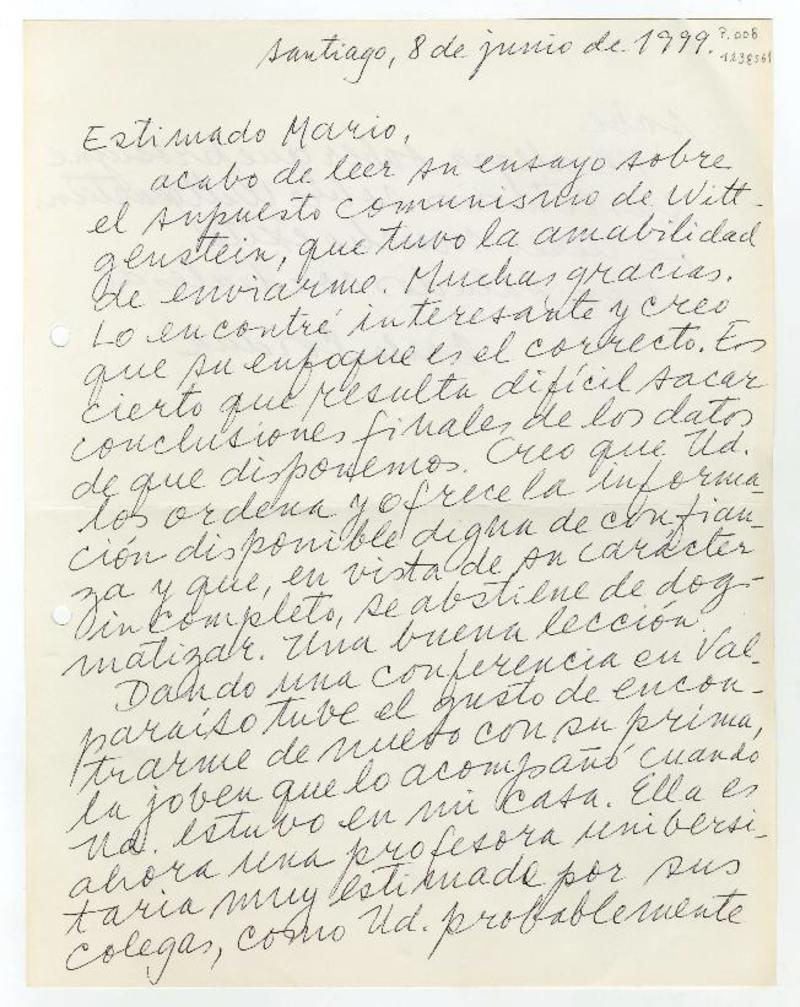 Santiago, 8 de junio de 1999.
P.008
1238561
Estimado Mario,
acabo de leer su ensayo sobre
el supuesto comunismo de Witt-
genstein, que tuvo la amabilidad
de enviarme. Muchas gracias.
Lo encontré interesante y creo
que su enfoque es el correcto. Es
cierto que resulta difícil sacar
conclusiones finales de los datos
de que disponemos. Creo que Ud.
los ordena y ofrece la informa-
ción disponible digna de confian-
za y que, en vista de su carácter
incompleto, se abstiene de dog-
matizar. Una buena lección.
Dando una conferencia en Val-
paraíso tuve el gusto de encon-
trarme de nuevo con su prima,
la joven que lo acompañó cuando
Ud. estuvo en mi casa. Ella es
ahora una profesora universi-
taria muy estimada por sus
colegas, como Ud. probablemente